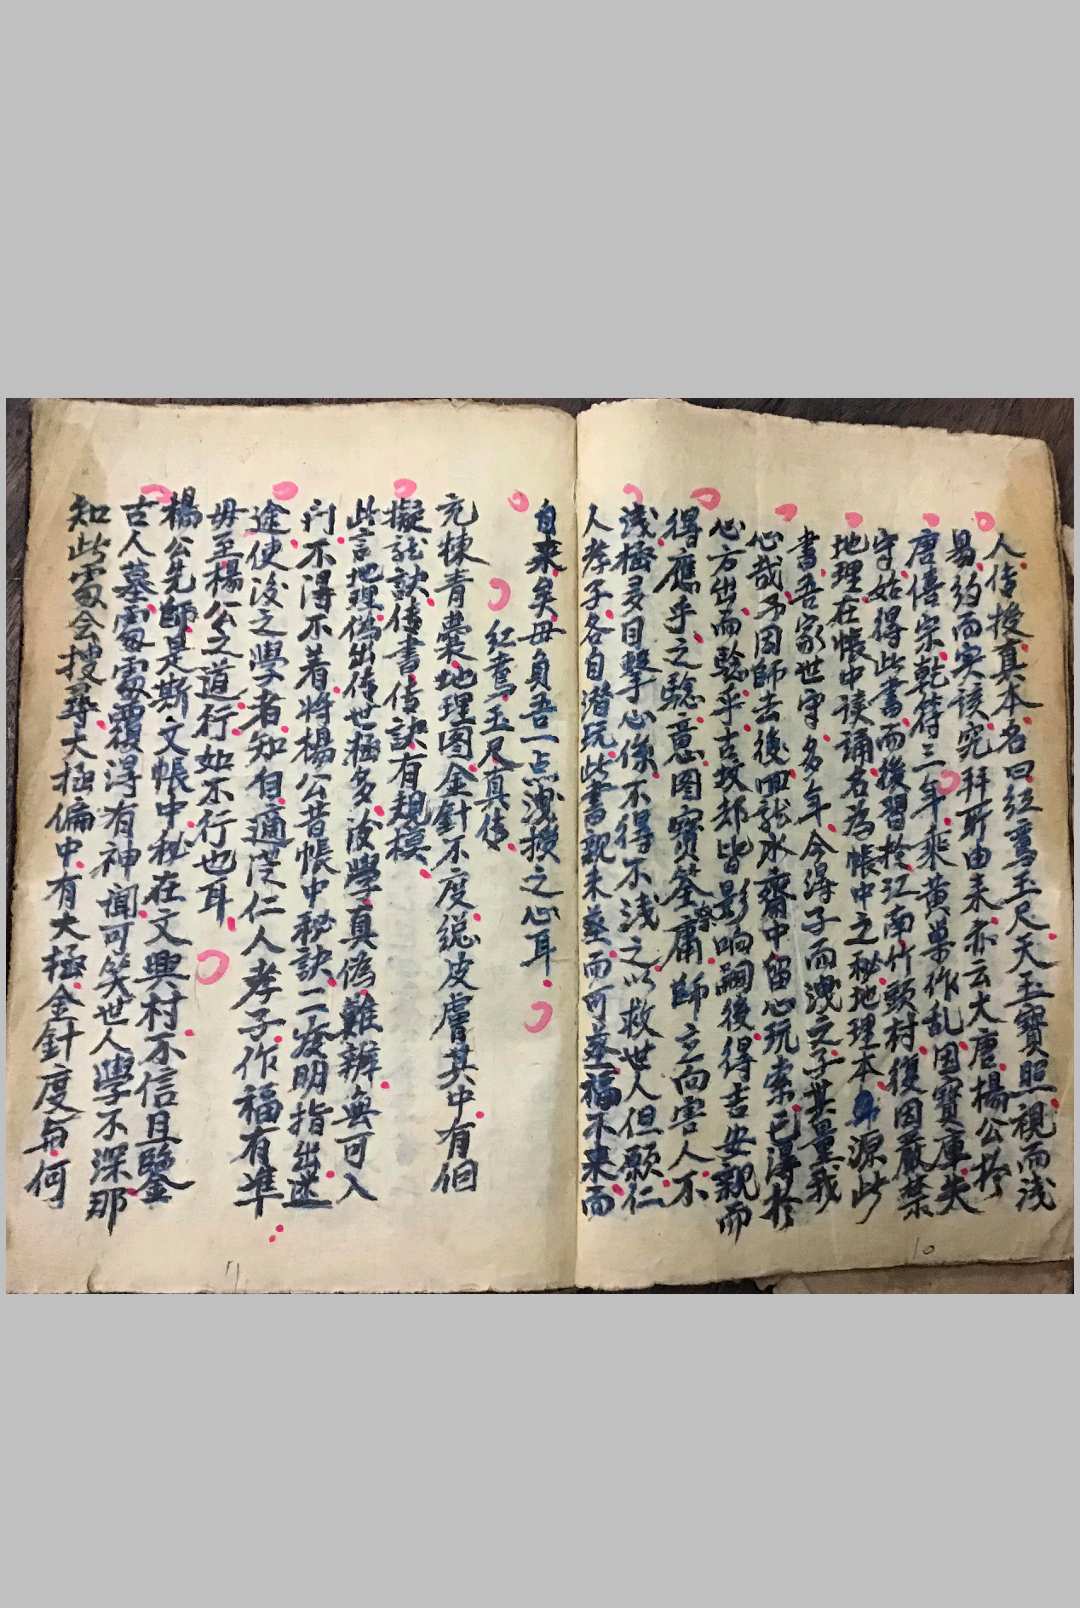 人传授真本名曰红鸾玉尺天玉寶照視而浅
易約而实该究拜所由来亦云大唐楊公於
唐僖宗乾符三年乘黄巢作乱因寶庫失
守始得此書而後習於江南竹頭村復因嚴禁
地理在帳中读誦名為帳中之秘地理本源此
書吾家世守多年今得子而洩之子其量我
心哉予因師去後四就水齋中留心玩索已得於
心方出而驗乎古坟却皆影响嗣後得吉安親而
得應乎之驗意图寶筌庸師立向害人不
浅極多目擊心傷不得不浅之以救世人但願仁
人孝子各自潜玩此書親未葬而可葬福不来而
自来矣毋負吾一点洩授之心耳
红鸾玉尺真传
充棟青囊地理图金針不度總皮膚其中有個
擬議訣传書传訣有規模
此言地理偽出传世極多後學真偽難辨無可入
门不得不着將楊公昔帳中秘訣二度明指出迷
途使後之學者知自適従仁人孝子作福有準
毋至楊公之道行如不行也耳
楊公先師是斯文帳中秘在文興村不信且鑒
古人墓處處覆得有神聞可笑世人學不深那
知此處会搜尋太極偏中有大極金針度每何
10
11